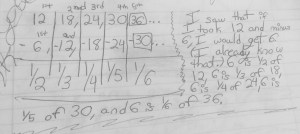 1st 2nd 3rd 4th 5th
12 | 18, -24, 30 36
- 6, -12, 18 -24 -30
1/2 | 1/3 | 1/4 | 1/5 | 1/6
I saw that is
took 12 and minus
6, I would get 6
I already know
that 6 is 1/2 of
12, 6 is 1/3 of 18,
6 is 1/4 of 24, 6 is
1/5 of 30, and 6 is 1/6 of 36.